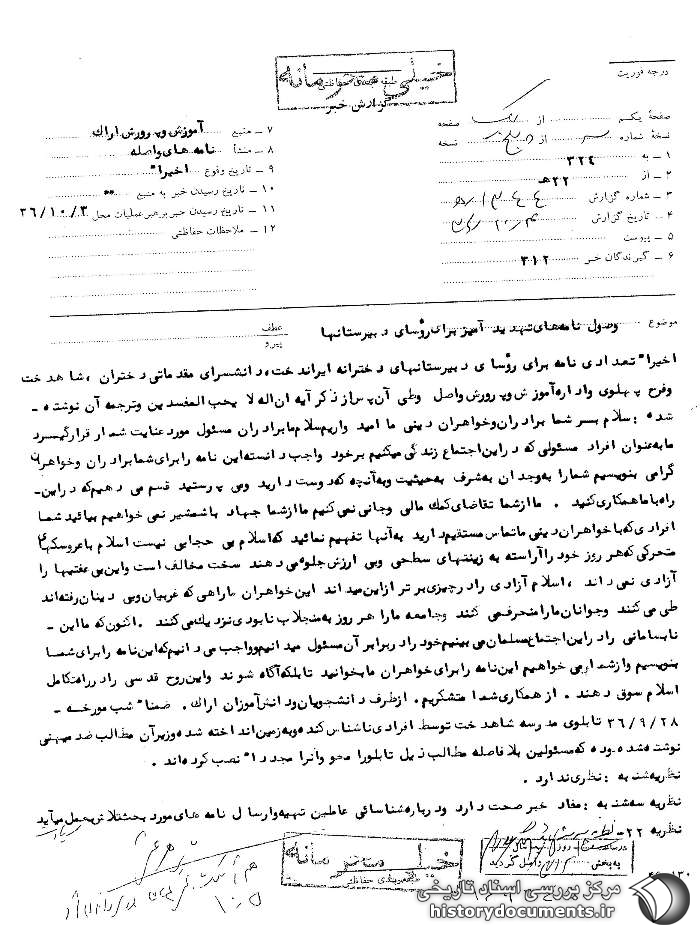 خیلی محرمانه
طبقه بندی حفاظتی
گزارش خبر
درجه فوریت
صفحهٔ یکم از یک صفحه
نسخهٔ شماره از نسخه
۱ ـ به ۳۲۴
۲ ـ از ۲۲هـ
۳ ـ شماره گزارش
۴ ـ تاریخ گزارش
۵ ـ پیوست
۶ ـ گیرندگان خبر ۳۱۲
۷ ـ منبع آموزش و پرورش اراک
۸ ـ منشأ نامه های واصله
۹ ـ تاریخ وقوع اخیرا"
۱۰ ـ تاریخ رسیدن خبر به منبع
۱۱ ـ تاریخ رسیدن خبر برهبر عملیات محل ۳۶/۱۰/۳
۱۲ ـ ملاحظات حفاظتی
موضوع وصول نامه های تهدید آمیز برای رؤسای دبیرستانها
عطف
پیرو
اخیرا" تعدادی نامه برای رؤسای دبیرستانهای دخترانه ایراندخت، دانشسرای مقدماتی دختران ، شاهدخت
وفرح پهلوی واداره آموزش وپرورش واصل وطی آن پس از ذکر آیه ان اله لا یحب المفسدین وترجمه آن نوشته ـ
شده : سلام بسر شما برادران وخواهران دینی ما امید واریم سلام ما برادران مسئول مورد عنایت شما قرار گیرد
ما به عنوان افراد مسئولی که در این اجتماع زندگی میکنیم برخود واجب دانسته این نامه را برای شما برادران وخواهران
گرامی بنویسیم شما را به وجدان به شرف به حیثیت وبه آنچه که دوست دارید ومی پرستید قسم می دهیم که در این ـ
راه با ما همکاری کنید . ما از شما تقاضای کمک مالی وجانی نمی کنیم ما از شما جهاد با شمشیر نمی خواهیم بیائید شما
افرادی که با خواهران دینی ما تماس مستقیم دارید به آنها تفهیم نمائید که اسلام بی حجابی نیست اسلام با عروسکهای
متحرکی که هر روز خود را آراسته به زینتهای سطحی وبی ارزش جلوه می دهند سخت مخالف است واین بی عفتیها را
آزادی نمی داند ، اسلام آزادی را در چیزی برتر از این میداند این خواهران ما راهی که غربیان وبی دینان رفته اند
طی می کنند وجوانان ما را منحرف می کنند وجامعه ما را هر روز به منجلاب نابودی نزدیک می کنند . اکنون که ما این ـ
نابسامانی را در این اجتماع مسلمان می بینیم خود را در برابر آن مسئول میدانیم وواجب می دانیم که این نامه را برای شما
بنویسیم واز شما می خواهیم این نامه را برای خواهران ما بخوانید تا بلکه آگاه شوند واین روح قدسی را در راه تکامل
اسلام سوق دهند . از همکاری شما متشکریم . از طرف دانشجویان ودانش آموزان اراک . ضمنا" شب مورخه ـ
۳۶/۹/۲۸ تابلوی مدرسه شاهدخت توسط افرادی ناشناس کنده وبه زمین انداخته شده وزیر آن مطالب ضد میهنی
نوشته شده بوده که مسئولین بلافاصله مطالب ذیل تابلو را محو وآنرا مجددا" نصب کرده اند .
نظریه شنبه : نظری ندارد .
نظریه سه شنبه : مفاد خبر صحت دارد ودرباره شناسائی عاملین تهیه وارسال نامه های مورد بحث تلاش بعمل میآید
نظریه ۲۲هـ
خیلی محرمانه
طبقه بندی حفاظتی
مرکز بررسی اسناد تاریخی
historydocuments.ir